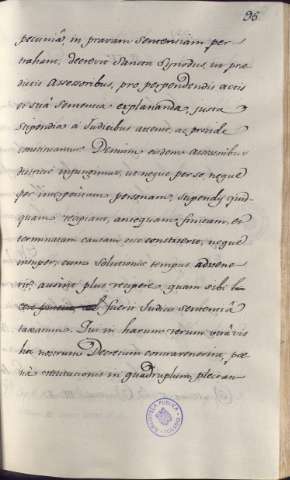 96
pecuniâ, in pravam sententiam per
trahant, decrevit Sancta Synodus, ut præ
dictis Assessoribus, pro perpendendis actis
et suâ sententia explananda, justa
stipendia à Judicibus attente, ac provide
constituantur. Demum eisdem assessoribus
districtè injungimus, ut neque per se, neque
per interpositam personam, stipendij quid
quam recipiant, antequam finitam, et
terminatam causam esse constiterit, neque
insuper, cum solutionis tempus advene
rit, audeant plus recipere, quam sibi
fuerit Judicis sententiâ
taxatum. Qui in harum rerum
hoc nostrum Decretum contravenerint, pœ
nâ restitutionis in quadruplum, plectan
BIBLIOTECA PUBLICA
TOLEDO